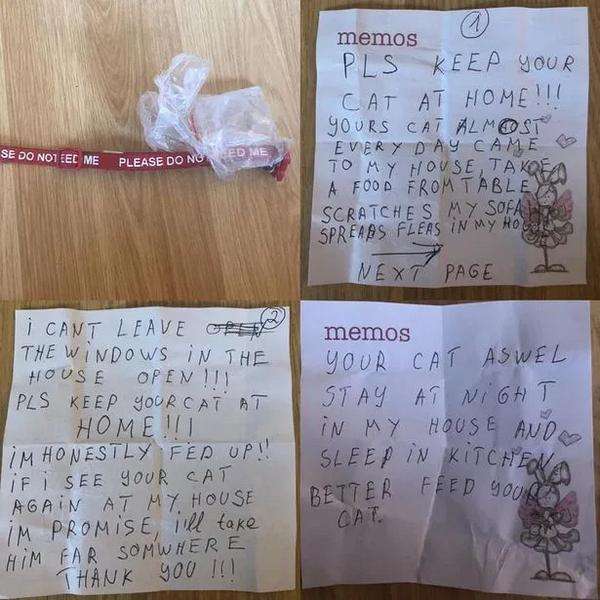 SE DO NOT EED ME PLEASE DO NO EED ME
1
memos
PLS KEEP YOUR
CAT AT HOME!!!
YOURS CAT ALMOST
EVERY DAY CAME
TO MY HOUSE, TAKE
A FOOD FROM TABLE
SCRATCHES MY SOFA
SPREADS FLEAS IN MY HOU
NEXT PAGE
2
i CANT LEAVE
THE WiNDOWS IN THE
HOUSE OPEN!!!
PLS KEEP YOUR CAT AT
HOME!!!
iM HONESTLY FED UP!!
iF i SEE YOUR CAT
AGAIN AT MY HOUSE
iM PROMISE, i'll take
HiM FAR SOMWHERE
THANK YOU !!!
memos
YOUR CAT ASWEL
STAY AT NiGHT
iN MY HOUSE AND
SLEEP iN KITCHEN
BETTER FEED YOUR
CAT.